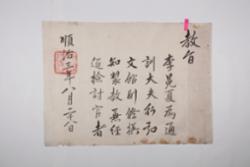 教旨
李冕夏爲通
訓大夫行弘
文館副修撰
知製教兼經
筵檢討官者
順治三年八月日